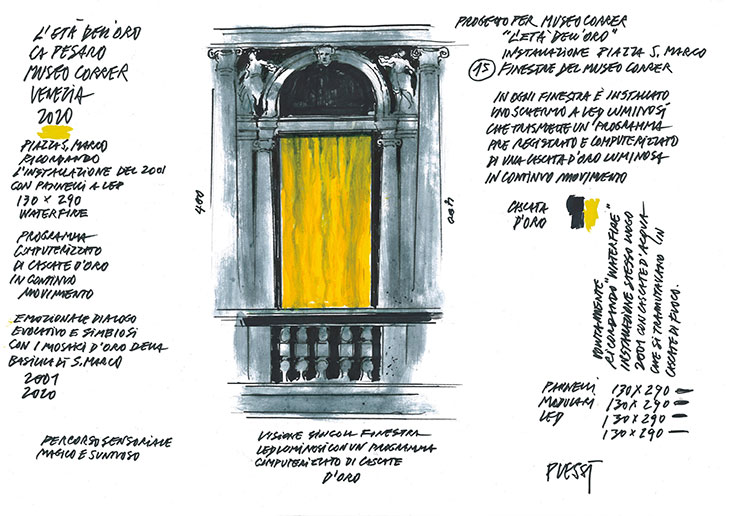 L'ETÀ DELL'ORO
CA PESARO
MUSEO CORRER
VENEZIA
2020
PIAZZA S. MARCO
RICORDANDO
L'INSTALLAZIONE DEL 2001
CON PANNELLI A LED
130 X 290
WATERFIRE
PROGRAMMA
COMPUTERIZZATO
DI CASCATE D'ORO
IN CONTINUO
MOVIMENTO
EMOZIONALE DIALOGO
EVOLUTIVO E SIMBIOSI
CON I MOSAICI D'ORO DELLA
BASILICA DI S. MARCO
2001
2020
PERCORSO SENSORIALE
MAGICO E SUNTUOSO
400
400
VISIONE SINGOLA FINESTRA
LED LUMINOSI CON UN PROGRAMMA
COMPUTERIZZATO DI CASCATE
D'ORO
PROGETTO PER MUSEO CORRER
"L'ETÀ DELL'ORO"
INSTALLAZIONE PIAZZA S. MARCO
15 FINESTRE DEL MUSEO CORRER
IN OGNI FINESTRA È INSTALLATO
UNO SCHERMO A LED LUMINOSI
CHE TRASMETTE UN PROGRAMMA
PRE REGISTRATO E COMPUTERIZZATO
DI UNA CASCATA D'ORO LUMINOSA
IN CONTINUO MOVIMENTO
CASCATA
D'ORO
VOLUTAMENTE
RICORDANDO "WATERFIRE"
INSTALLAZIONE STESSO LUOGO
2001 CON CASCATE D'ACQUA
CHE SI TRAMUTAVANO IN
CASCATE DI FUOCO.
PANNELLI 130 X 290
MODULARI 130 X 290
LED 130 X 290
130 X 290
PLESSI